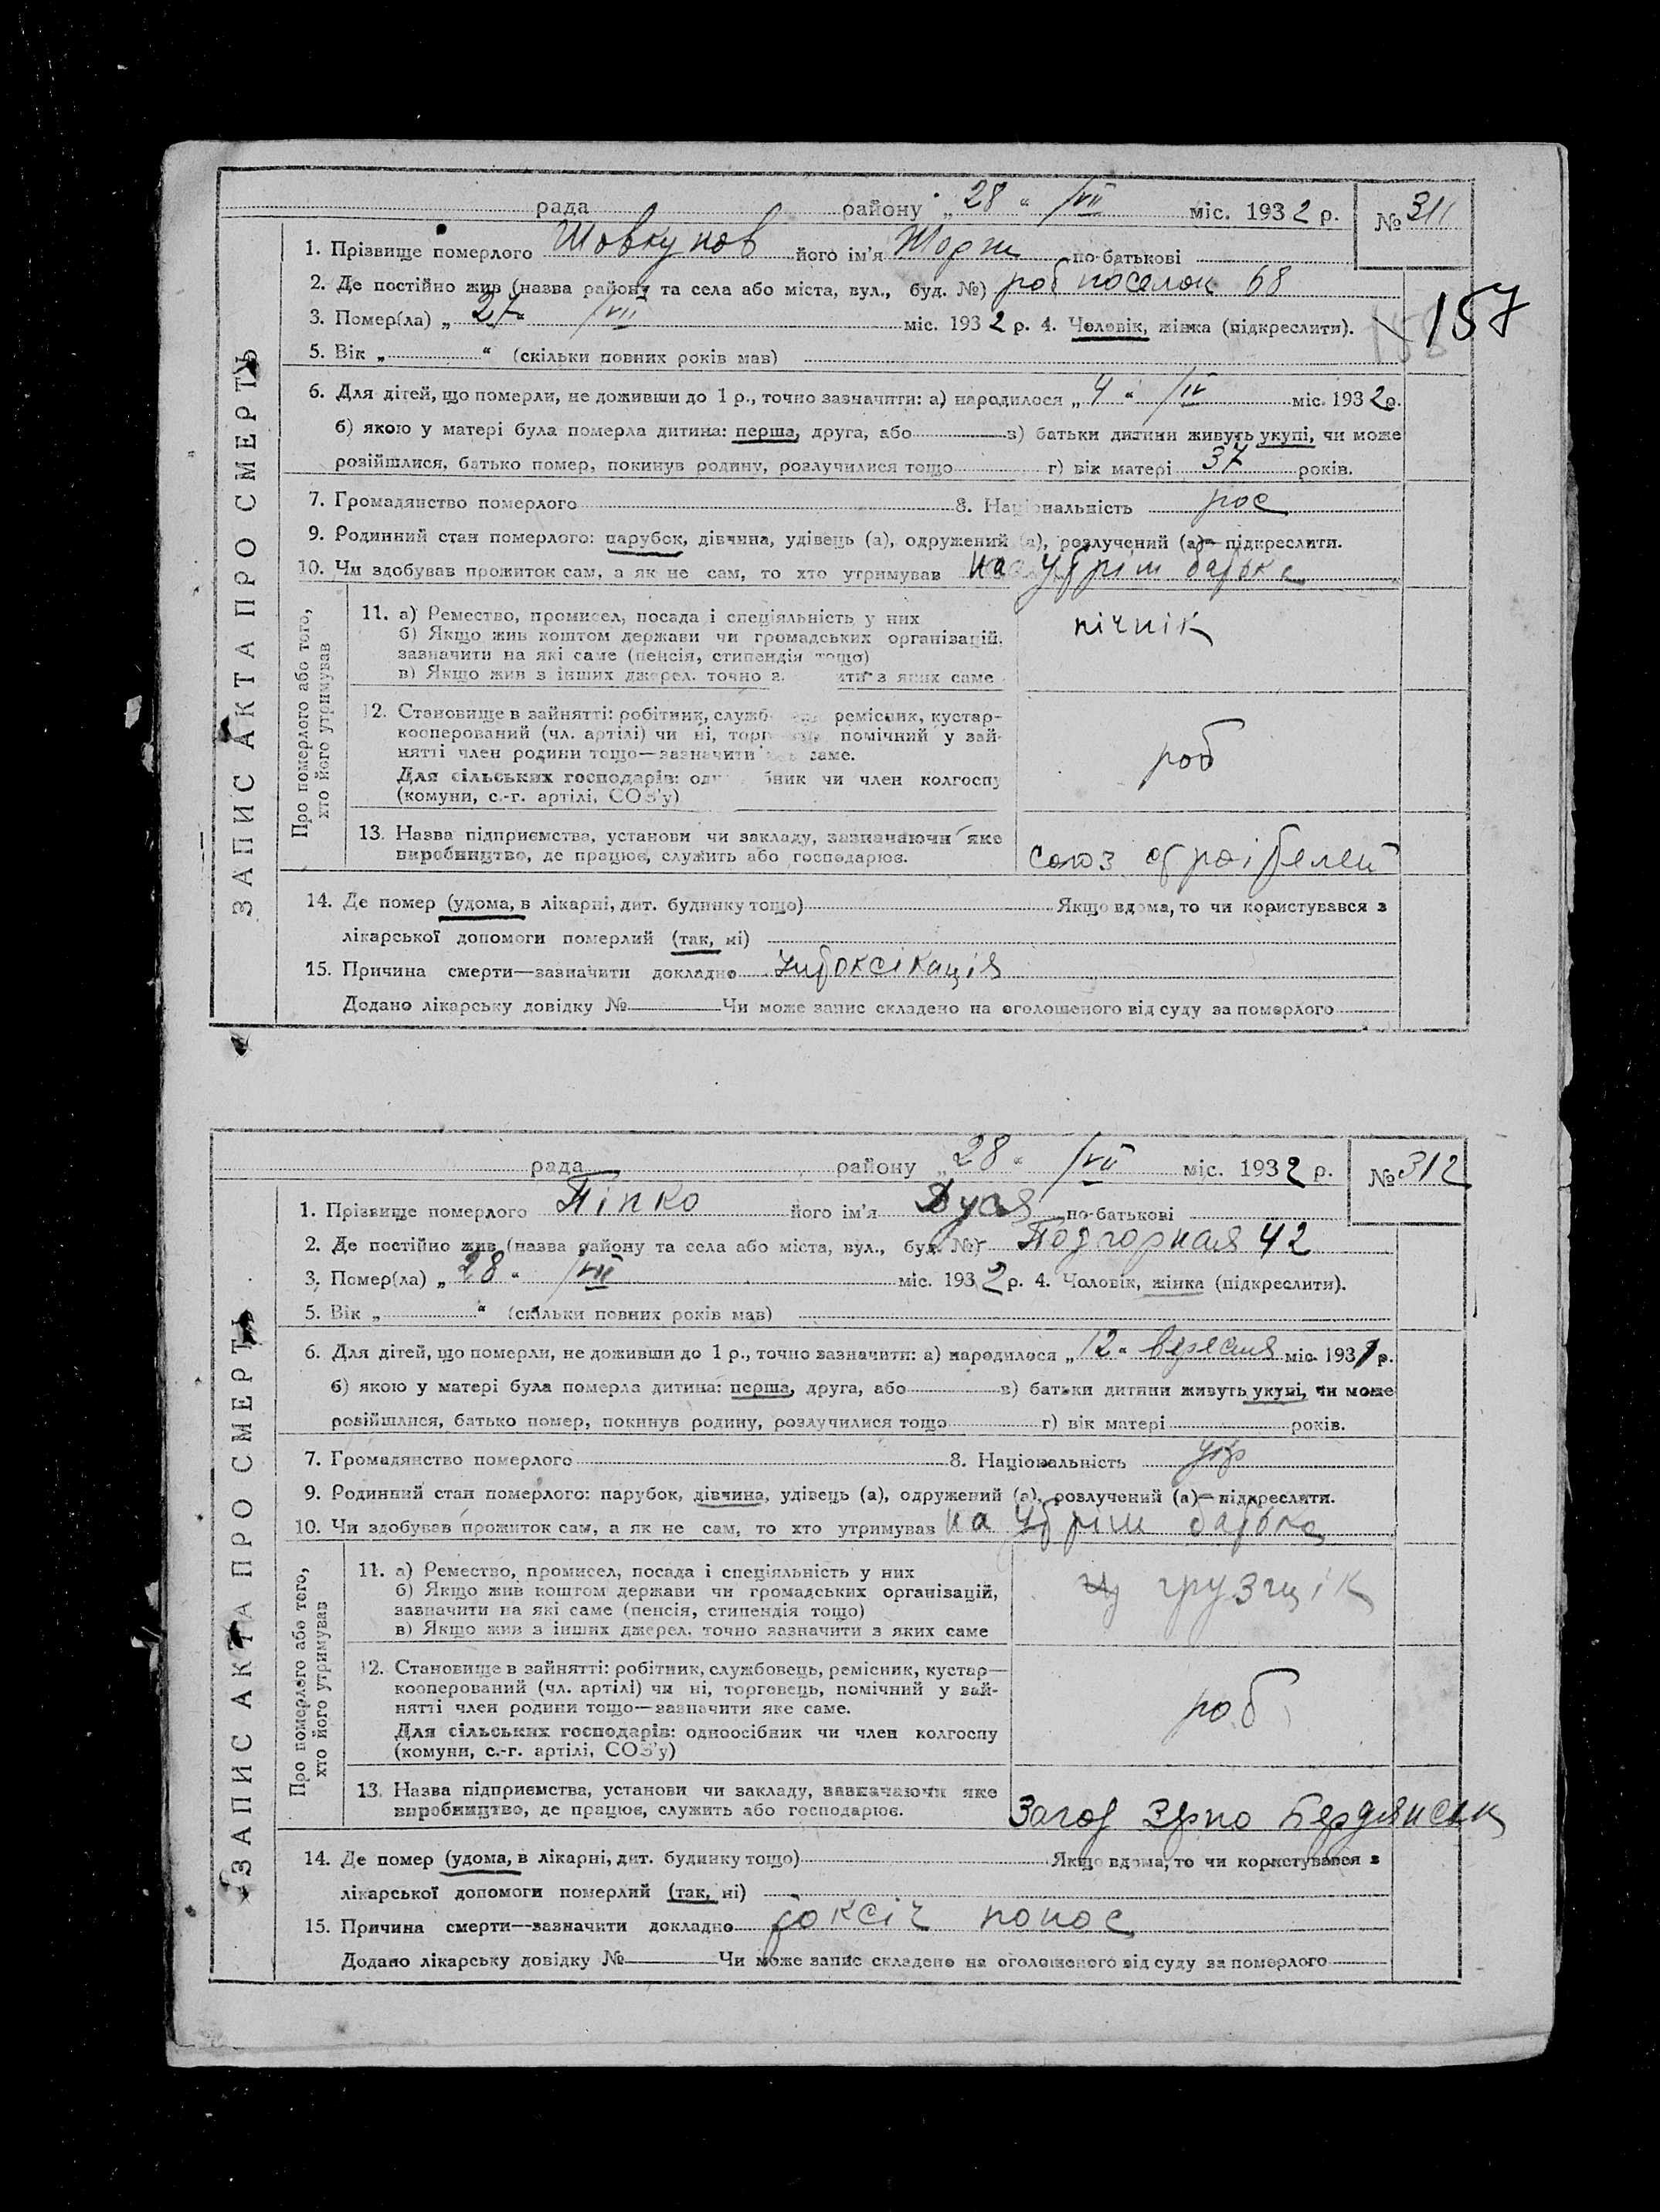 рада району „28“ /VII міс. 1932 р. № 311
1. Прізвище померлого Шовкунов його ім'я Жорж по-батькові
2. Де постійно жив (назва району та села або міста, вул., буд. №) роб поселок 68
3. Помер(ла) „27“ /VII міс. 1932 р. 4. Чоловік, жінка (підкреслити).
157
5. Вік „ “ (скільки повних років мав)
6. Для дітей, що померли, не доживши до 1 р., точно зазначити: а) народилося „4“ /IV міс. 1932 р.
б) якою у матері була померла дитина: перша, друга, або в) батьки дитини живуть укупі, чи може
розійшлися, батько помер, покинув родину, розлучилися тощо г) вік матері 37 років.
7. Громадянство померлого 8. Національність рос
9. Родинний стан померлого: парубок, дівчина, удівець (а), одружений (а), розлучений (а)—підкреслити.
10. Чи здобував прожиток сам, а як не сам, то хто утримував на утрім батька
ЗАПИС АКТА ПРО СМЕРТЬ
Про померлого або того, хто його утримував
11. а) Ремество, промисел, посада і спеціяльність у них
б) Якщо жив коштом держави чи громадських організацій,
зазначити на які саме (пенсія, стипендія тощо)
в) Якщо жив з інших джерел. точно з яких саме
пічнік
12. Становище в зайнятті: робітник, служб ремісник, кустар-
кооперований (чл. артілі) чи ні, торг помічний у зай-
нятті член родини тощо—зазначити саме.
Для сільських господарів: од бник чи член колгоспу
(комуни, с.-г. артілі, СОЗ'у)
роб
13. Назва підприємства, установи чи закладу, зазначаючи яке
виробництво, де працює, служить або господарює.
союз строітелей
14. Де помер (удома, в лікарні, дит. будинку тощо) Якщо вдома, то чи користувався з
лікарської допомоги померлий (так, ні)
15. Причина смерти—зазначити докладно Інтоксікація
Додано лікарську довідку № Чи може запис складено на оголошеного від суду за померлого
рада району „28“ /VII міс. 1932 р. № 312
1. Прізвище померлого Піпко його ім'я Дуся по-батькові
2. Де постійно жив (назва району та села або міста, вул., буд. №) Подгорная 42
3. Помер(ла) „28“ /VII міс. 1932 р. 4. Чоловік, жінка (підкреслити).
5. Вік „ “ (скільки повних років мав)
6. Для дітей, що померли, не доживши до 1 р., точно зазначити: а) народилося „12“ вересня міс. 1931 р.
б) якою у матері була померла дитина: перша, друга, або в) батьки дитини живуть укупі, чи може
розійшлися, батько помер, покинув родину, розлучилися тощо г) вік матері років.
7. Громадянство померлого 8. Національність укр
9. Родинний стан померлого: парубок, дівчина, удівець (а), одружений (а), розлучений (а)—підкреслити.
10. Чи здобував прожиток сам, а як не сам, то хто утримував на утрім батька
ЗАПИС АКТА ПРО СМЕРТЬ
Про померлого або того, хто його утримував
11. а) Ремество, промисел, посада і спеціяльність у них
б) Якщо жив коштом держави чи громадських організацій,
зазначити на які саме (пенсія, стипендія тощо)
в) Якщо жив з інших джерел. точно зазначити з яких саме
грузщік
12. Становище в зайнятті: робітник, службовець, ремісник, кустар—
кооперований (чл. артілі) чи ні, торговець, помічний у зай-
нятті член родини тощо—зазначити яке саме.
Для сільських господарів: одноосібник чи член колгоспу
(комуни, с.-г. артілі, СОЗ'у)
роб
13. Назва підприємства, установи чи закладу, зазначаючи яке
виробництво, де працює, служить або господарює.
Загот Зрно Бердянськ
14. Де помер (удома, в лікарні, дит. будинку тощо) Якщо вдома, то чи користувався з
лікарської допомоги померлий (так, ні)
15. Причина смерти—зазначити докладно токсіч понос
Додано лікарську довідку № Чи може запис складено на оголошеного від суду за померлого